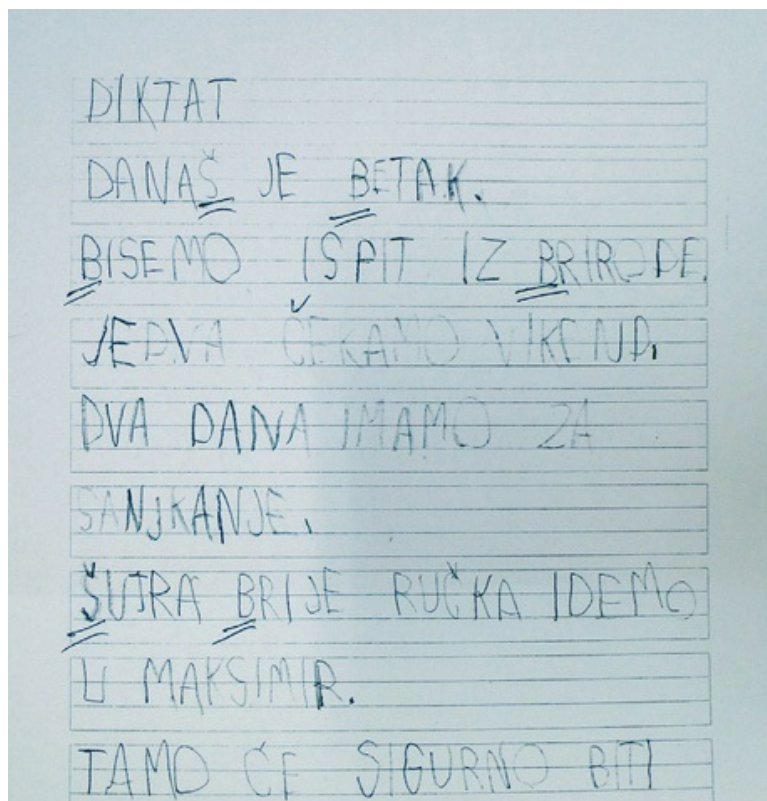 DIKTAT
DANAŠ JE BETAK.
BISEMO ISPIT IZ BRIRODE.
JEDVA ČEKAMO VIKEND.
DVA DANA IMAMO ZA
SANJKANJE.
ŠUTRA BRIJE RUČKA IDEMO
U MAKSIMIR.
TAMO ĆE SIGURNO BITI